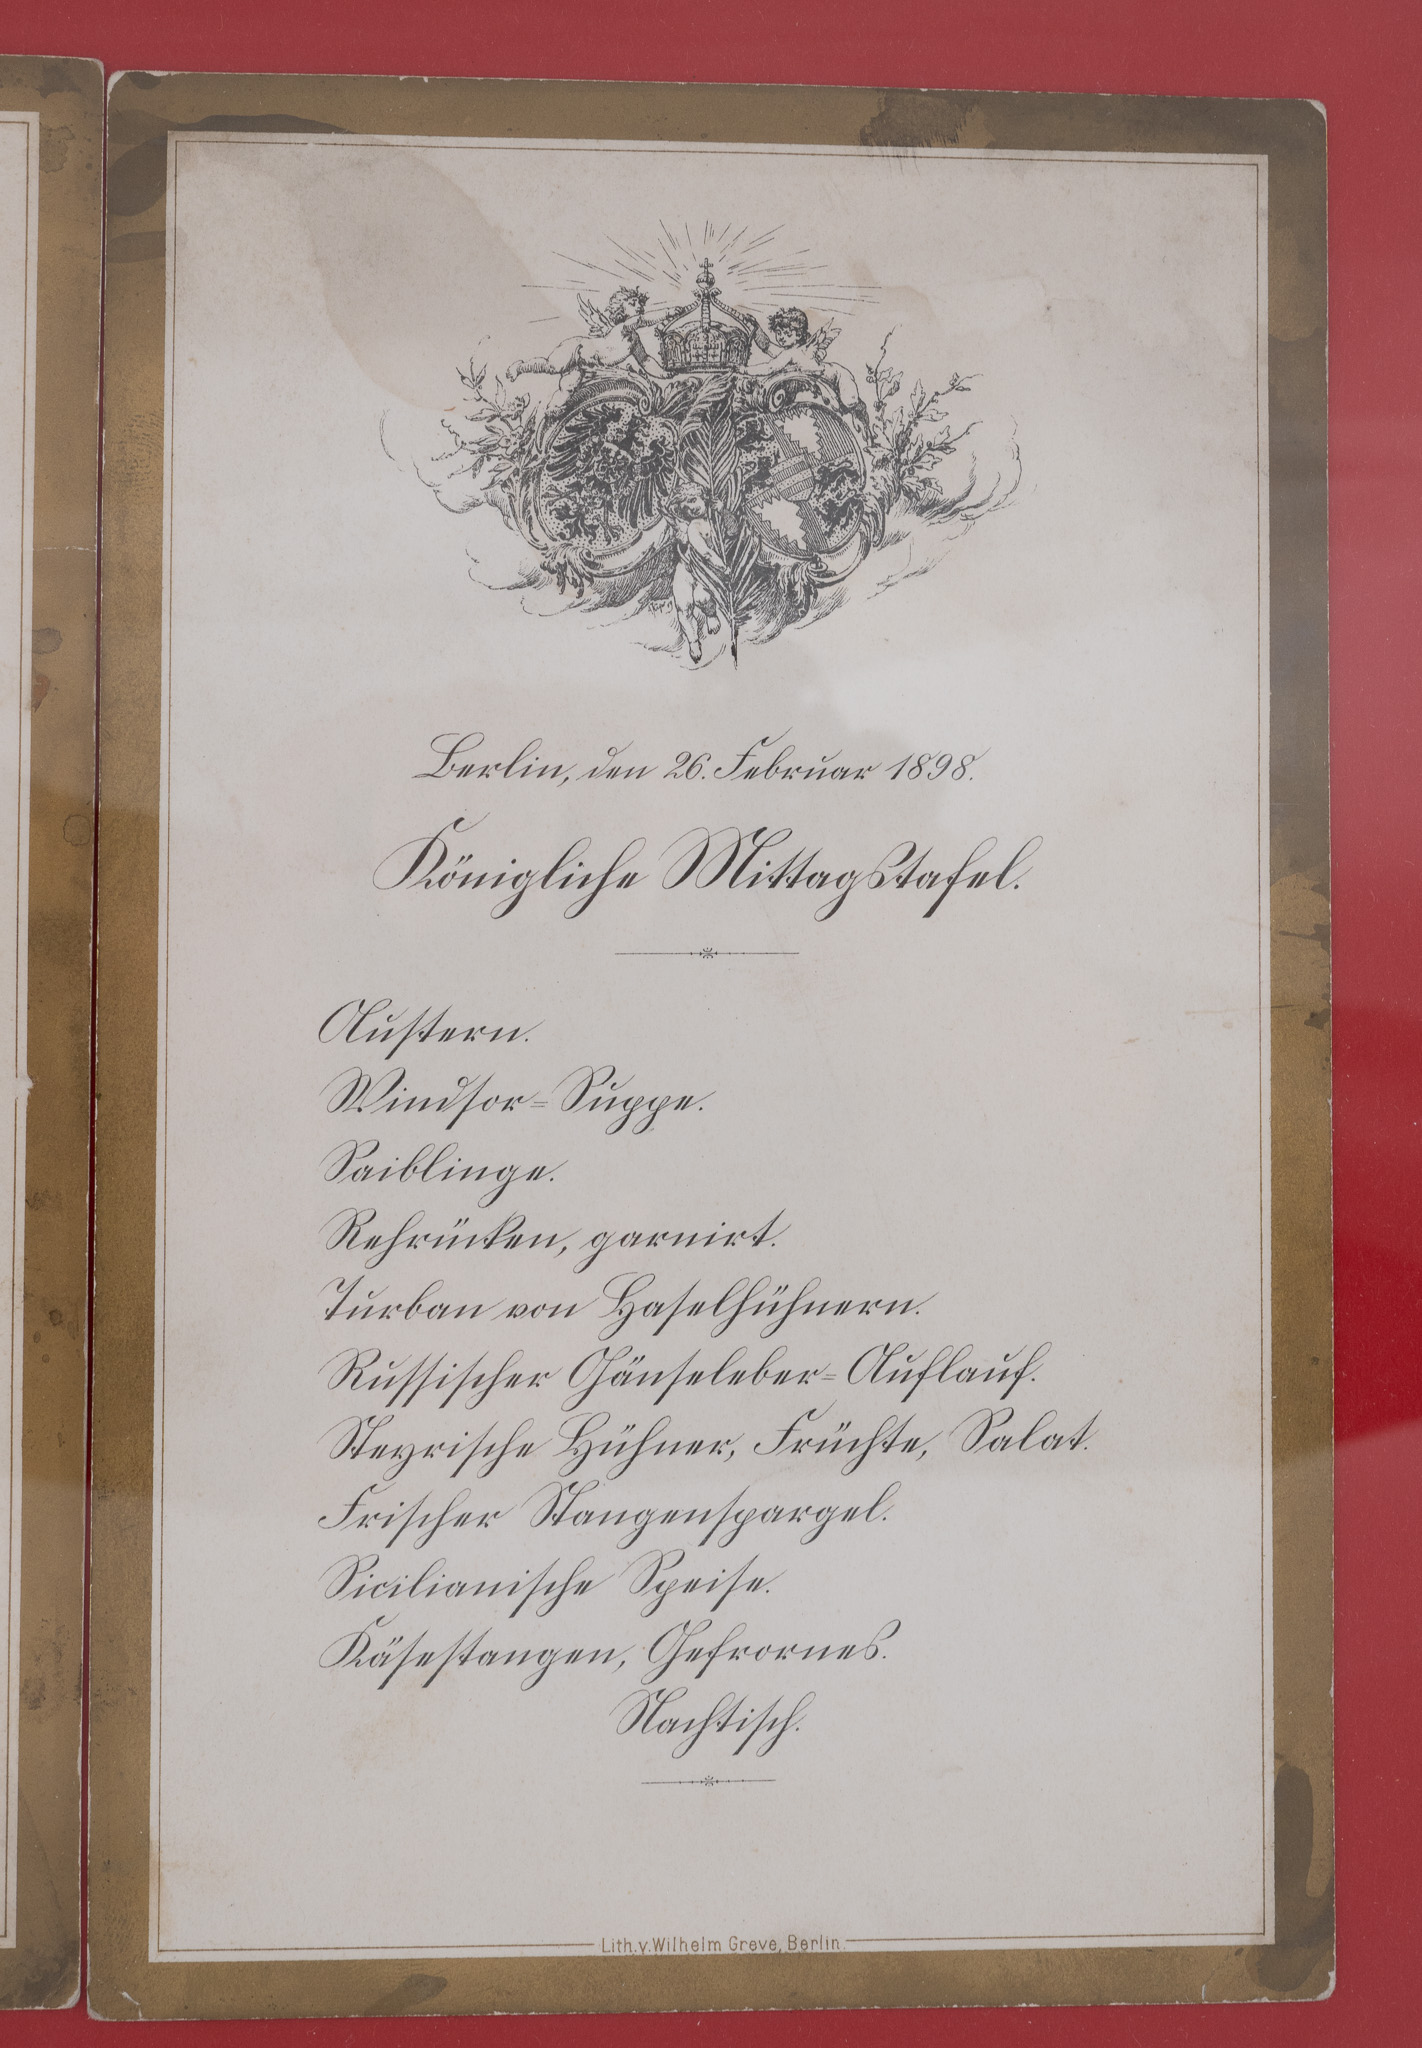 Berlin, den 26. Februar 1898.
Königliche Mittagstafel.
Austern.
Windsor=Suppe.
Saiblinge.
Rehrücken, garnirt.
Turban von Haselhühnern.
Russischer Gänseleber=Auflauf.
Steyrische Hühner, Früchte, Salat.
Frischer Stangenspargel.
Sicilianische Speise.
Käsestangen, Gefrornes.
Nachtisch.
Lith. v. Wilhelm Greve, Berlin.